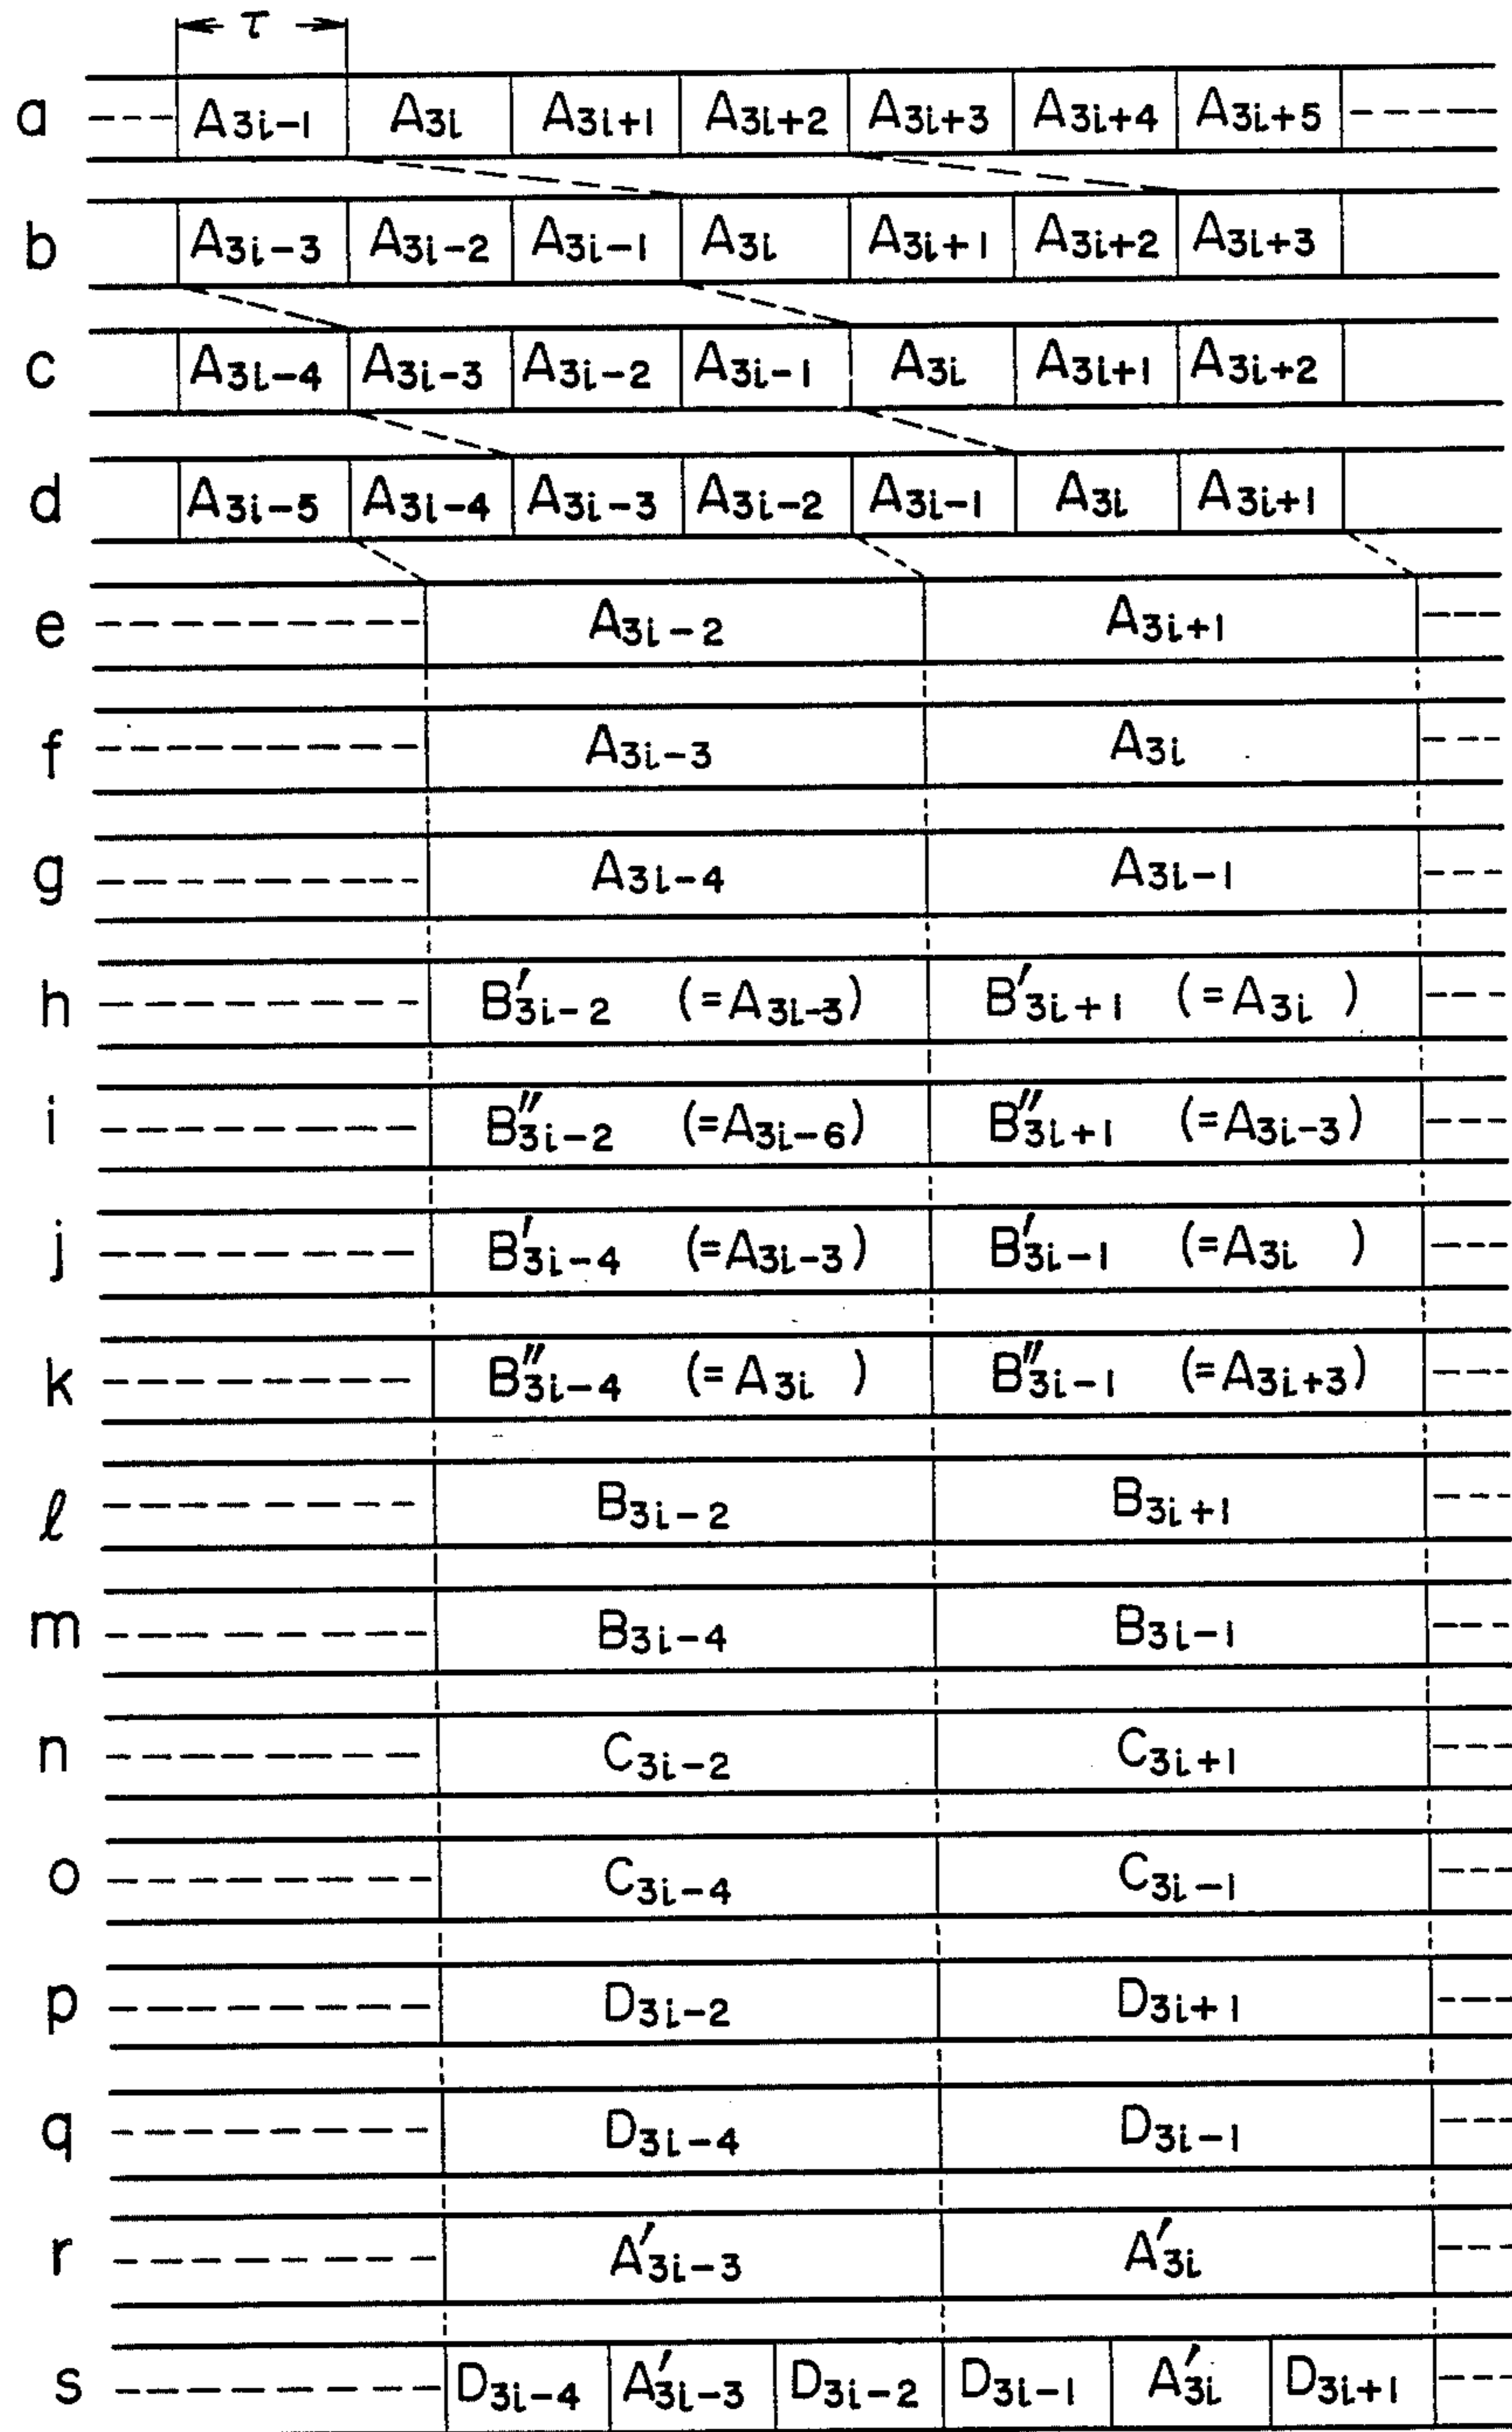 τ
a A3i-1 A3i A3i+1 A3i+2 A3i+3 A3i+4 A3i+5
b A3i-3 A3i-2 A3i-1 A3i A3i+1 A3i+2 A3i+3
c A3i-4 A3i-3 A3i-2 A3i-1 A3i A3i+1 A3i+2
d A3i-5 A3i-4 A3i-3 A3i-2 A3i-1 A3i A3i+1
e A3i-2 A3i+1
f A3i-3 A3i
g A3i-4 A3i-1
h B'3i-2 (=A3i-3) B'3i+1 (=A3i )
i B''3i-2 (=A3i-6) B''3i+1 (=A3i-3)
j B'3i-4 (=A3i-3) B'3i-1 (=A3i )
k B''3i-4 (=A3i ) B''3i-1 (=A3i+3)
ℓ B3i-2 B3i+1
m B3i-4 B3i-1
n C3i-2 C3i+1
o C3i-4 C3i-1
p D3i-2 D3i+1
q D3i-4 D3i-1
r A'3i-3 A'3i
s D3i-4 A'3i-3 D3i-2 D3i-1 A'3i D3i+1